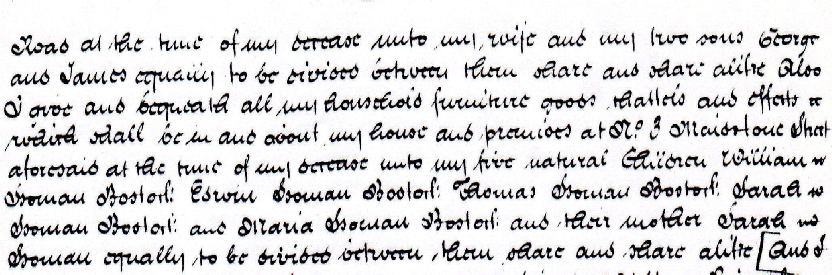 Road at the time of my decease unto my wife and my two sons George
and James equally to be divided between them share and share alike Also
I give and bequeath all my household furniture goods chattels and effects
which shall be in and about my house and premises at No. 3 Maidstone Street
aforesaid at the time of my decease unto my five natural Children William
Homan Bostock Edwin Homan Bostock Thomas Homan Bostock Sarah
Homan Bostock and Maria Homan Bostock and their mother Sarah
Homan equally to be divided between them share and share alike [And I